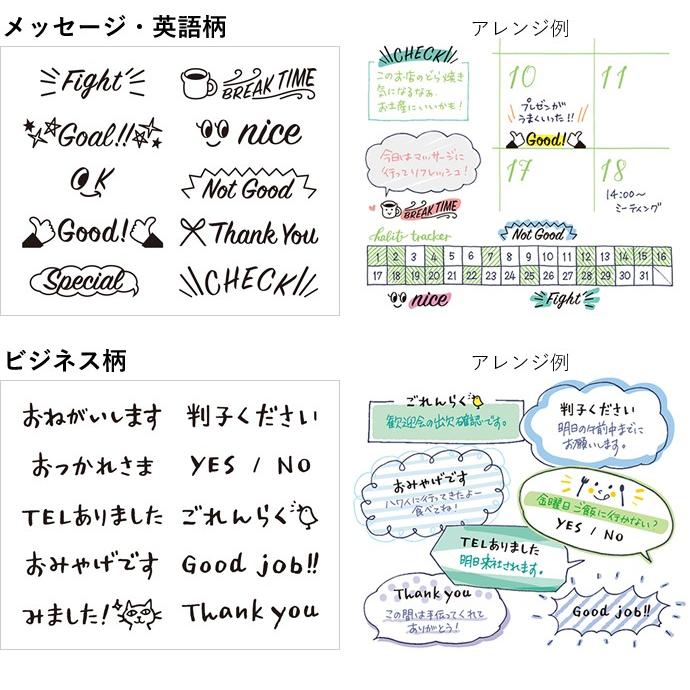 メッセージ・英語柄
Fight
BREAK TIME
Goal!!
nice
OK
Not Good
Good!
Thank You
Special
CHECK!
アレンジ例
CHECK!
このお店のどら焼き
気になるなぁ。
お土産にいいかも!
10
11
プレゼンが
うまくいった!!
Good!
今日はマッサージに
行ってリフレッシュ!
17
18
14:00~
ミーティング
BREAK TIME
habits tracker
Not Good
1 2 3 4 5 6 7 8 9 10 11 12 13 14 15 16
17 18 19 20 21 22 23 24 25 26 27 28 29 30 31
nice
Fight
ビジネス柄
おねがいします
判子ください
おつかれさま
YES / NO
TELありました
ごれんらく
おみやげです
Good job!!
みました!
Thank you
アレンジ例
ごれんらく
歓迎会の出欠確認です。
判子ください
明日の午前中までに
お願いします。
おみやげです
ハワイに行ってきたよー
食べてね!
金曜日ご飯に行かない?
YES / NO
TELありました
明日来社されます。
Thank you
この間は手伝ってくれて
ありがとう!
Good job!!